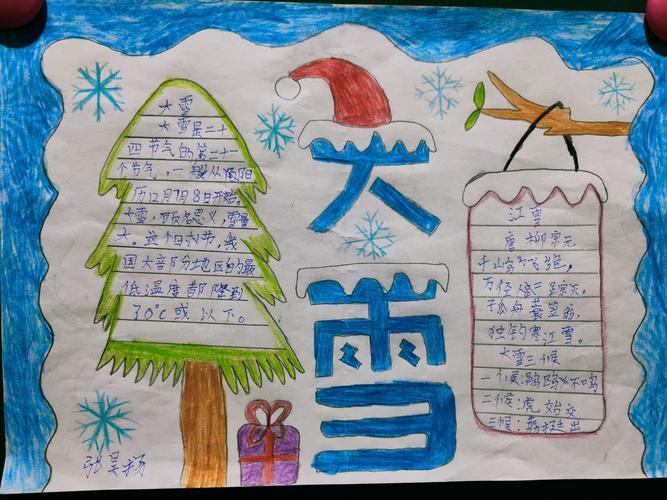 大雪
大雪是二十
四节气的第二十一
个节气,一般从阳
历12月7日8日开始。
大雪,顾名思义,雪量
大。这个时节,我
国大部分地区的最
低温度都降到
了0℃或以下。
大
雪
江雪
唐 柳宗元
千山鸟飞绝,
万径人踪灭。
孤舟蓑笠翁,
独钓寒江雪。
大雪三候
一候:鹖鸥不鸣
二候:虎始交
三候:荔挺出
张昊扬